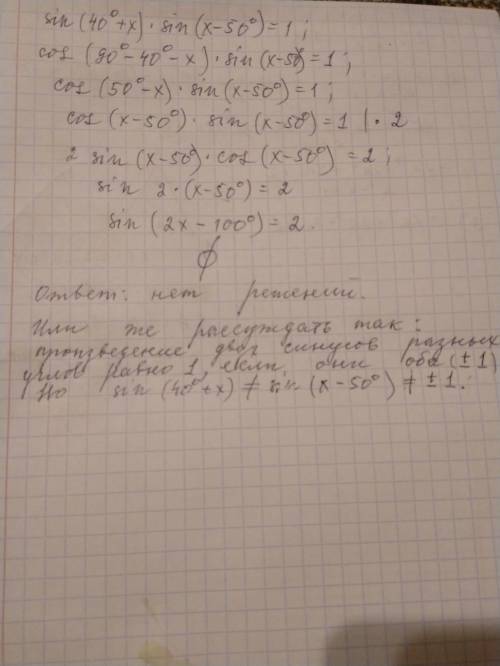 sin (40°+x) · sin (x-50°)=1 ;
cos (90°-40°-x) · sin (x-50°)=1 ;
cos (50°-x) · sin (x-50°)=1 ;
cos (x-50°) · sin (x-50°)=1 | · 2
2 sin (x-50°) · cos (x-50°) = 2 ;
sin 2 · (x-50°) = 2
sin (2x - 100°) = 2 .
∅
Ответ: нет решений.
Или же рассуждать так:
произведение двух синусов разных
углов равно 1, если они оба (±1)
Но sin (40°+x) ≠ sin (x-50°) ≠ ±1.